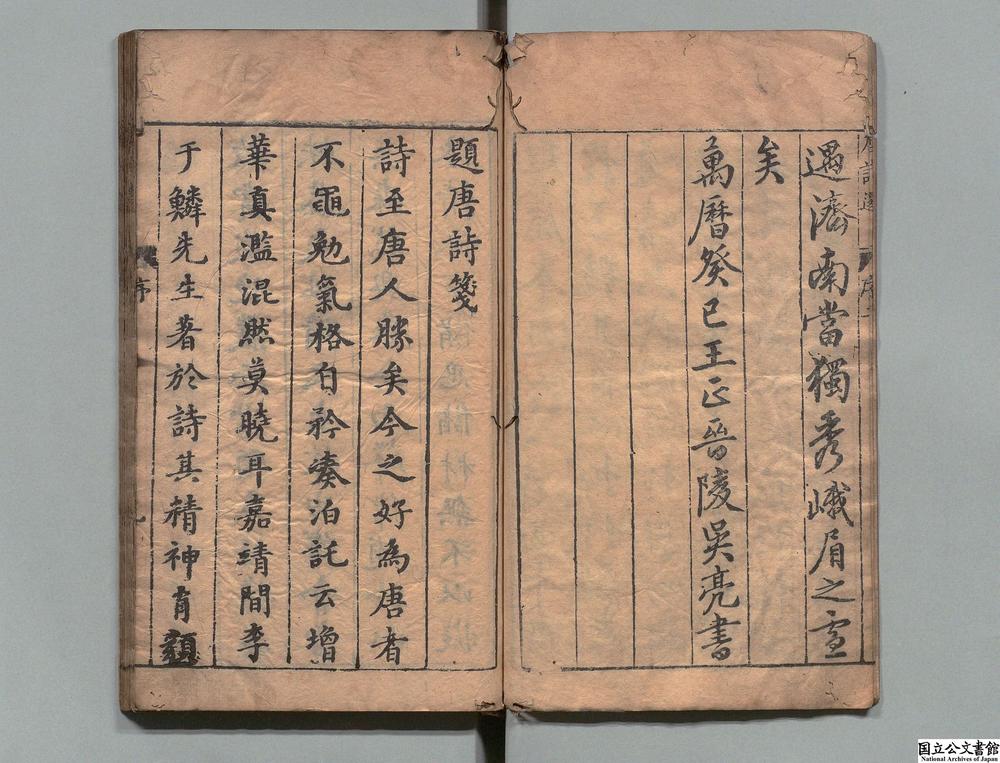 遇濟南當獨秀峨眉之雪
矣
萬曆癸巳王正晉陵吳亮書
題唐詩箋
詩至唐人勝矣今之好為唐者
不黽勉氣格白矜湊泊託云增
華真濫混然莫曉耳嘉靖間李
于鱗先生著於詩其精神肯顧
序
国立公文書館
National Archives of Japan